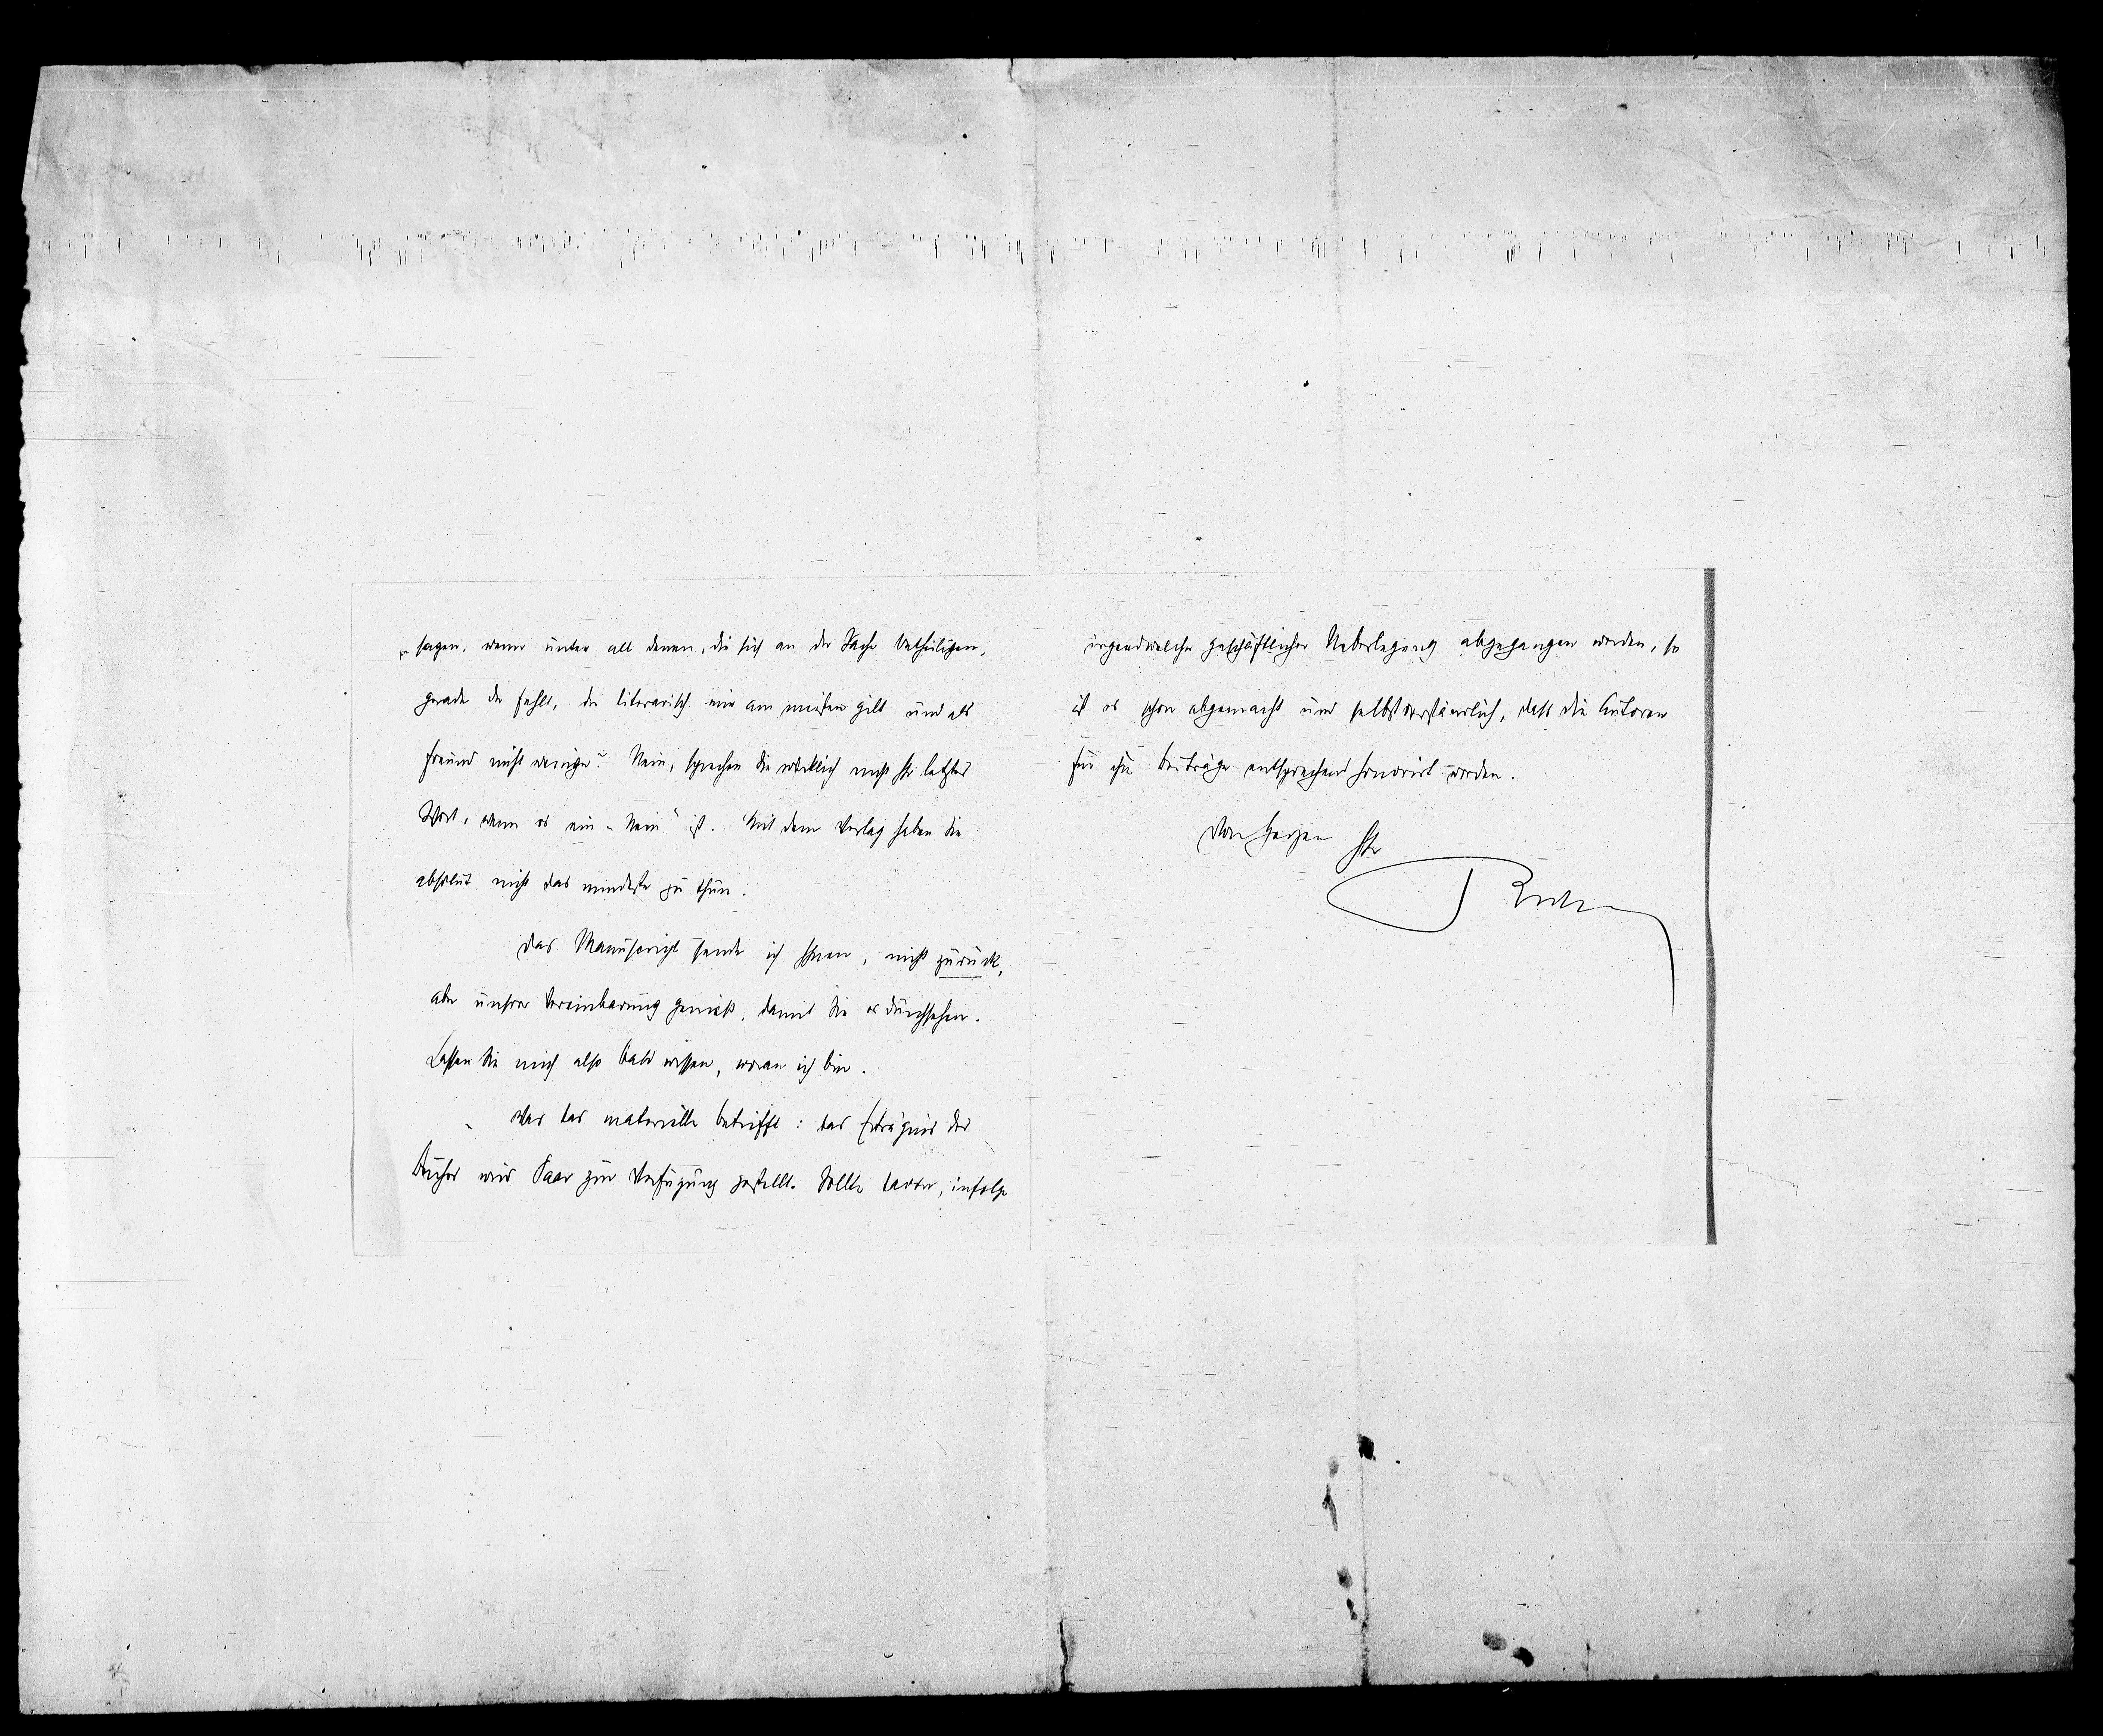 sagen, wenn unter all denen, die sich an der Sache betheiligen,
gerade der fehlt, der literarisch mir am meisten gilt und als
Freund nicht weniger? Nein, sprechen Sie wirklich nicht Ihr letztes
Wort, wenn es ein „Nein“ ist. Mit dem Verlag haben Sie
absolut nicht das mindeste zu thun.
Das Manuscript sende ich Ihnen, nicht zurück,
aber unsrer Vereinbarung gemäß, damit Sie es durchsehen.
Lassen Sie mich also bald wissen, woran ich bin.
Was das materielle betrifft: das Erträgnis des
Buches wird Saar zur Verfügung gestellt. Sollte davon, infolge
irgendwelcher geschäftlicher Ueberlegung abgegangen werden, so
ist es schon abgemacht und selbstverständlich, dass die Autoren
für ihre Beiträge entsprechend honorirt werden.
Von Herzen Ihr